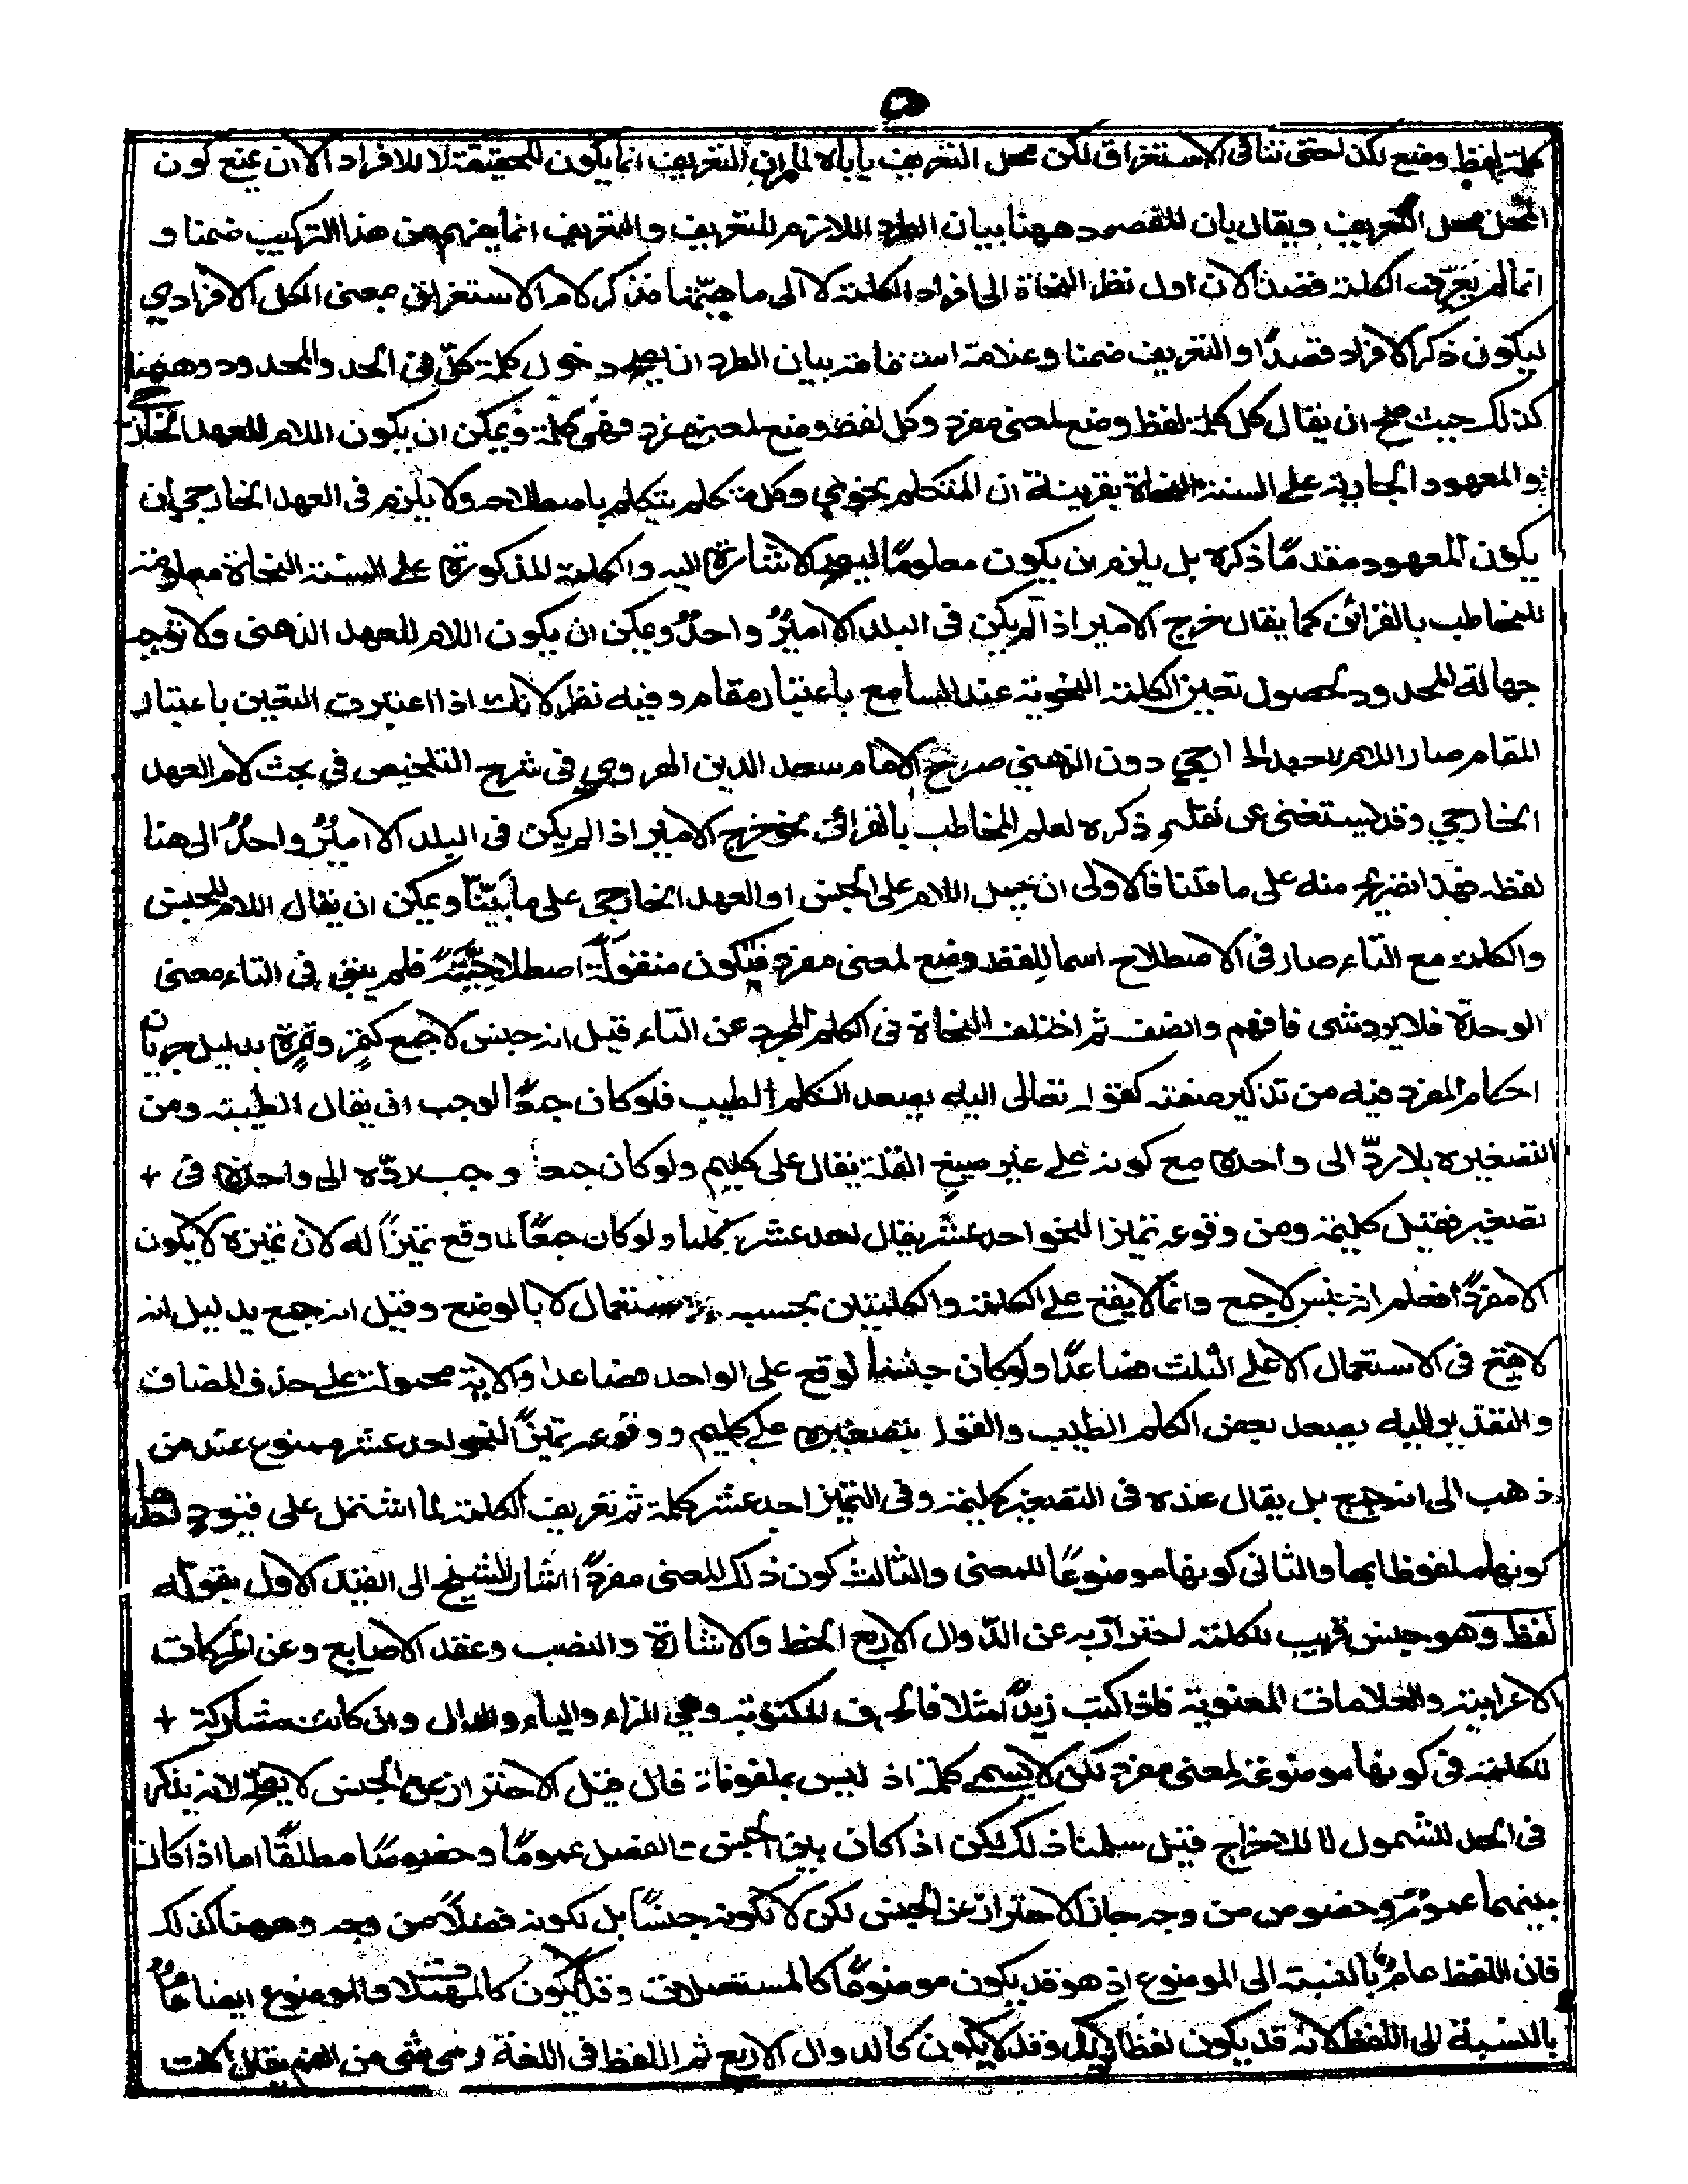 ٥
كلمة لفظ وضع لكن لحتى تنافى الاستغراق لكن محل التعريف ياباه لما ان التعريف انما يكون للحقيقة لا للافراد الا ان يمنع كون
المحل محل التعريف ويقال بان المقصود ههنا بيان الطرد اللازم للتعريف والتعريف انما يفهم من هذا التركيب ضمنا و
انما لم يعرف الكلمة قصدا لان اول نظر النحاة الى افراد الكلمة لا الى ماهيتها فذكر لام الاستغراق بمعنى الكل الافرادي
ليكون ذكر الافراد قصدًا والتعريف ضمنا وعلامة استقامة بيان الطرد ان يصح دخول كلمة كلّ فى الحد والمحدود وههنا
كذلك حيث صح ان يقال كل كلمة لفظ وضع لمعنى مفرد وكل لفظ وضع لمعنى مفرد فهى كلمة ويمكن ان يكون اللام للعهد الخارجى
والمعهود الجارية على السنة النحاة بقرينة ان المتكلم نحوي وكل متكلم يتكلم باصطلاحه ولا يلزم فى العهد الخارجي ان
يكون المعهود مقدمًا ذكره بل يلزم ان يكون معلومًا ليصح الاشارة اليه والكلمة المذكورة على السنة النحاة معلومة
للمخاطب بالقرائن كما يقال خرج الامير اذا لم يكن فى البلد الا اميرٌ واحدٌ ويمكن ان يكون اللام للعهد الذهنى ولا توجب
جهالة المحدود لحصول تعين الكلمة النحوية عند السامع باعتبار مقام وفيه نظر لانك اذا اعتبرت التعين باعتبار
المقام صار اللام للعهد الخارجي دون الذهني صرح الامام سعد الدين الهروي فى شرح التلخيص في بحث لام العهد
الخارجي وقد يستغنى عن تقدم ذكره لعلم المخاطب بالقرائن نحو خرج الامير اذا لم يكن فى البلد الا اميرٌ واحدٌ الى هنا
لفظه فهذا تصريح منه على ما قلنا فالاولى ان يحمل اللام على الجنس او العهد الخارجي على ما بيّنّا ويمكن ان يقال اللام للجنس
والكلمة مع التاء صار فى الاصطلاح اسما للفظ وضع لمعنى مفرد فتكون منقولةً اصطلاحيّةً فلم يبق فى التاء معنى
الوحدة فلا يرد شى فافهم وانصف ثم اختلف النحاة فى الكلم المجرد عن التاء قيل انه جنس لا جمع كتمر وتمرة بدليل جريان
احكام المفرد فيه من تذكير صفته كقوله تعالى اليه يصعد الكلم الطيب فلو كان جمعًا لوجب ان يقال الطيبة ومن
التصغيره بلا ردّ الى واحده مع كونه على غير صيغ القلة يقال على كليم ولو كان جمعا وجب ردّه الى واحده فى +
تصغيره فقيل كليمة ومن وقوعه تميزا لنحو احد عشر يقال احد عشر كلما ولو كان جمعًا لما وقع تميزًا له لان تميزه لا يكون
الا مفردًا فعلم انه جنس لا جمع وانما لا يقع على الكلمة والكلمتين بحسب الاستعمال لا بالوضع وقيل انه جمع بدليل انه
لا يقع فى الاستعمال الا على الثلث فصاعدًا ولو كان جنسا لوقع على الواحد فصاعدا والاية محمولة على حذف المضاف
والتقدير اليه يصعد بعض الكلم الطيب والقول بتصغيره على كليم ووقوعه تميزًا لنحو احد عشر ممنوع عند من
ذهب الى انه جمع بل يقال عنده فى التصغير كليمة وفى التميز احد عشر كلمة ثم تعريف الكلمة لما اشتمل على قيود احدها
كونها ملفوظا بها والثانى كونها موضوعًا للمعنى والثالث كون ذلك المعنى مفردًا اشار الشيخ الى القيد الاول بقوله
لفظ وهو جنس قريب للكلمة احترز به عن الدّوال الاربع الخط والاشارة والنصب وعقد الاصابع وعن الحركات
الاعرابية والعلامات المعنوية فاذا كتب زيدًا مثلا فالحرف المكتوبة وهي الزاء والياء والدال وان كانت مشاركة +
للكلمة فى كونها موضوعة لمعنى مفرد لكن لا يسمى كلمة اذ ليس بملفوظة فان قيل الاحتراز عن الجنس لا يصح لانه يذكر
فى الحد للشمول لا للاخراج قيل سلمنا ذلك لكن اذا كان بين الجنس والفصل عمومًا وخصوصًا مطلقًا اما اذا كان
بينهما عمومٌ وخصوص من وجه جاز الاحتراز عن الجنس لكن لا لكونه جنسًا بل لكونه فصلًا من وجه وههنا كذلك
فان اللفظ عامٌ بالنسبة الى الموضوع اذ هو قد يكون موضوعًا كالمستعملات وقد لا يكون كالمهملات والموضوع ايضا عامٌ
بالنسبة الى اللفظ لانه قد يكون لفظا كزيد وقد لا يكون كالدوال الاربع ثم اللفظ فى اللغة رمى شى من الفم يقال اكلت